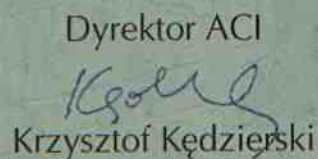 Dyrektor ACI
Krzysztof Kędzierski